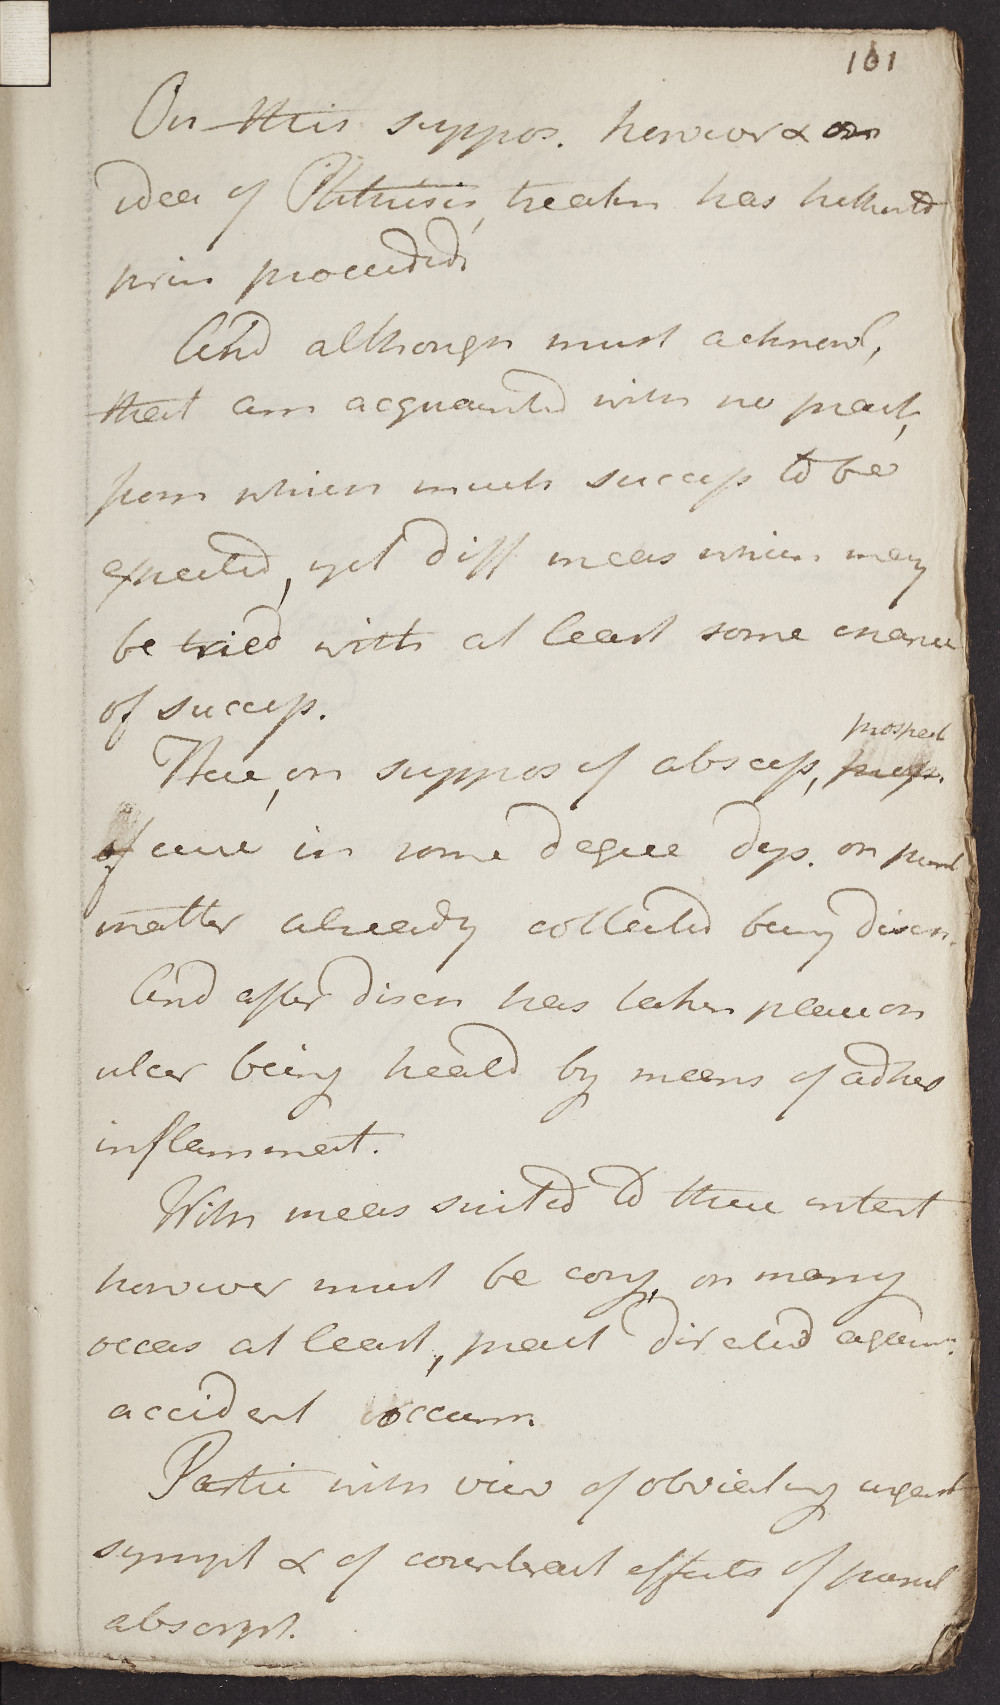 161
On this suppos. however & on
idea of Phthisis, treatm has hitherto
prin proceeded
And although must acknowl,
that am acquainted with no pract,
from which much success to be
expected, yet diff meas which may
be tried with at least some chance
of success.
prospect
Here, on suppos of abscess,
of cure in some degree dep. on purul
matter already collected being disch.
And after disch has taken place on
ulcer being heald by means of adhes
inflammat.
With meas suited to these intent
however must be conj, on many
occas at least, pract directed again.
accident occurr.
Partic with view of obviating urgent
sympt & of counteract effects of purul
absorpt.